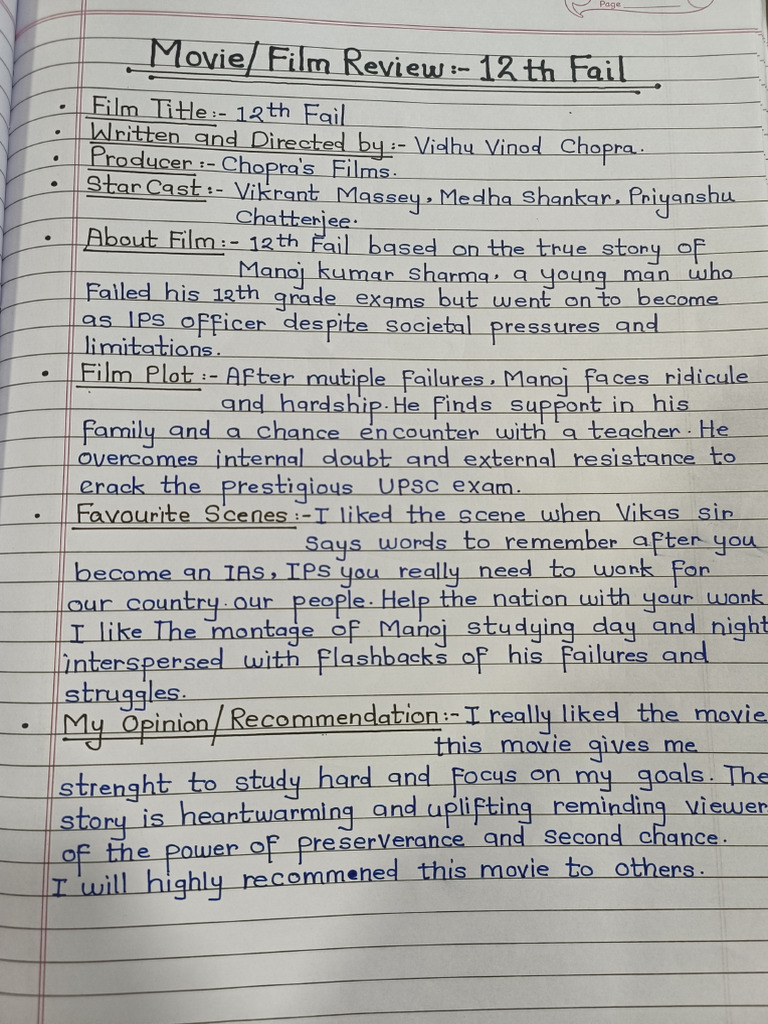 Page
Movie/Film Review:- 12th Fail
• Film Title:- 12th Fail
• Written and Directed by:- Vidhu Vinod Chopra.
• Producer:- Chopra's Films.
• Star Cast:- Vikrant Massey, Medha Shankar, Priyanshu
Chatterjee.
• About Film:- 12th Fail based on the true story of
Manoj kumar sharma, a young man who
failed his 12th grade exams but went on to become
as IPS officer despite societal pressures and
limitations.
• Film Plot:- After mutiple failures, Manoj faces ridicule
and hardship. He finds support in his
family and a chance encounter with a teacher. He
overcomes internal doubt and external resistance to
crack the prestigious UPSC exam.
• Favourite Scenes:- I liked the scene when Vikas sir
says words to remember after you
become an IAS, IPS you really need to work for
our country. our people. Help the nation with your work
I like The montage of Manoj studying day and night
interspersed with flashbacks of his failures and
struggles.
• My Opinion/Recommendation:- I really liked the movie
this movie gives me
strenght to study hard and focus on my goals. The
story is heartwarming and uplifting reminding viewer
of the power of preserverance and second chance.
I will highly recommened this movie to others.